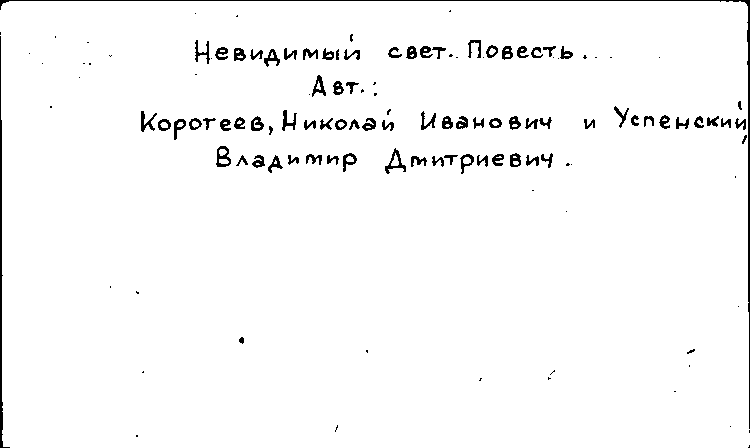 Невидимый свет. Повесть.
Авт.:
Коротеев, Николай Иванович и Успенский,
Владимир Дмитриевич.